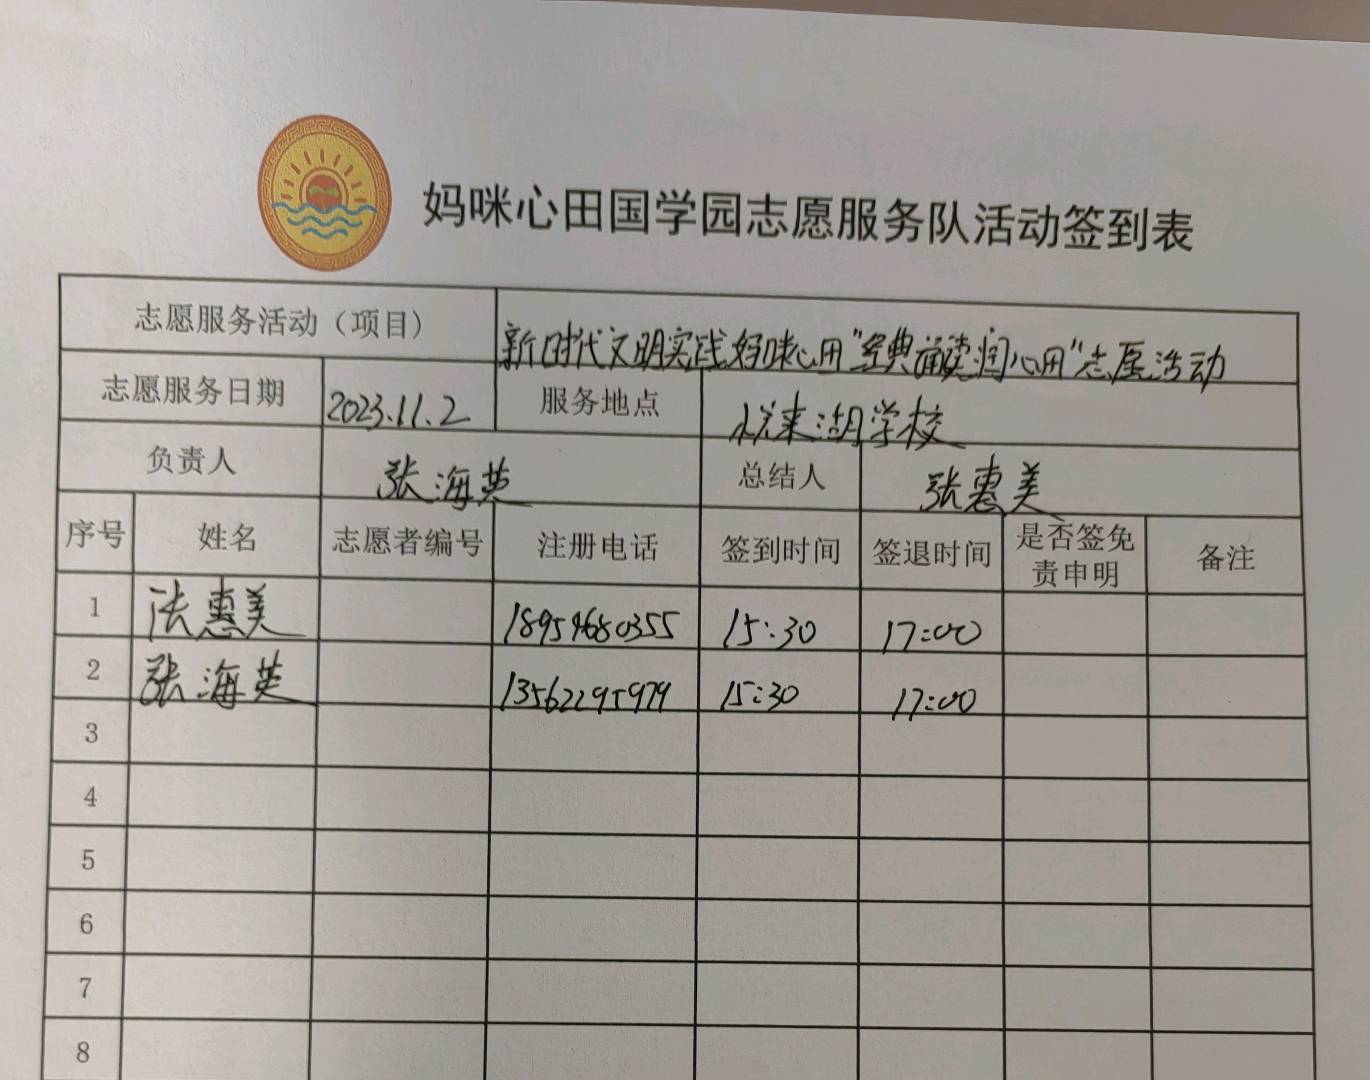 妈咪心田国学园志愿服务队活动签到表
志愿服务活动（项目） 新时代文明实践妈咪心田"经典诵读润心田"志愿活动
志愿服务日期 2023.11.2 服务地点 悦来湖学校
负责人 张海英 总结人 张惠美
序号 姓名 志愿者编号 注册电话 签到时间 签退时间 是否签免责申明 备注
1 张惠美 18954680355 15:30 17:00
2 张海英 13562295979 15:30 17:00
3
4
5
6
7
8